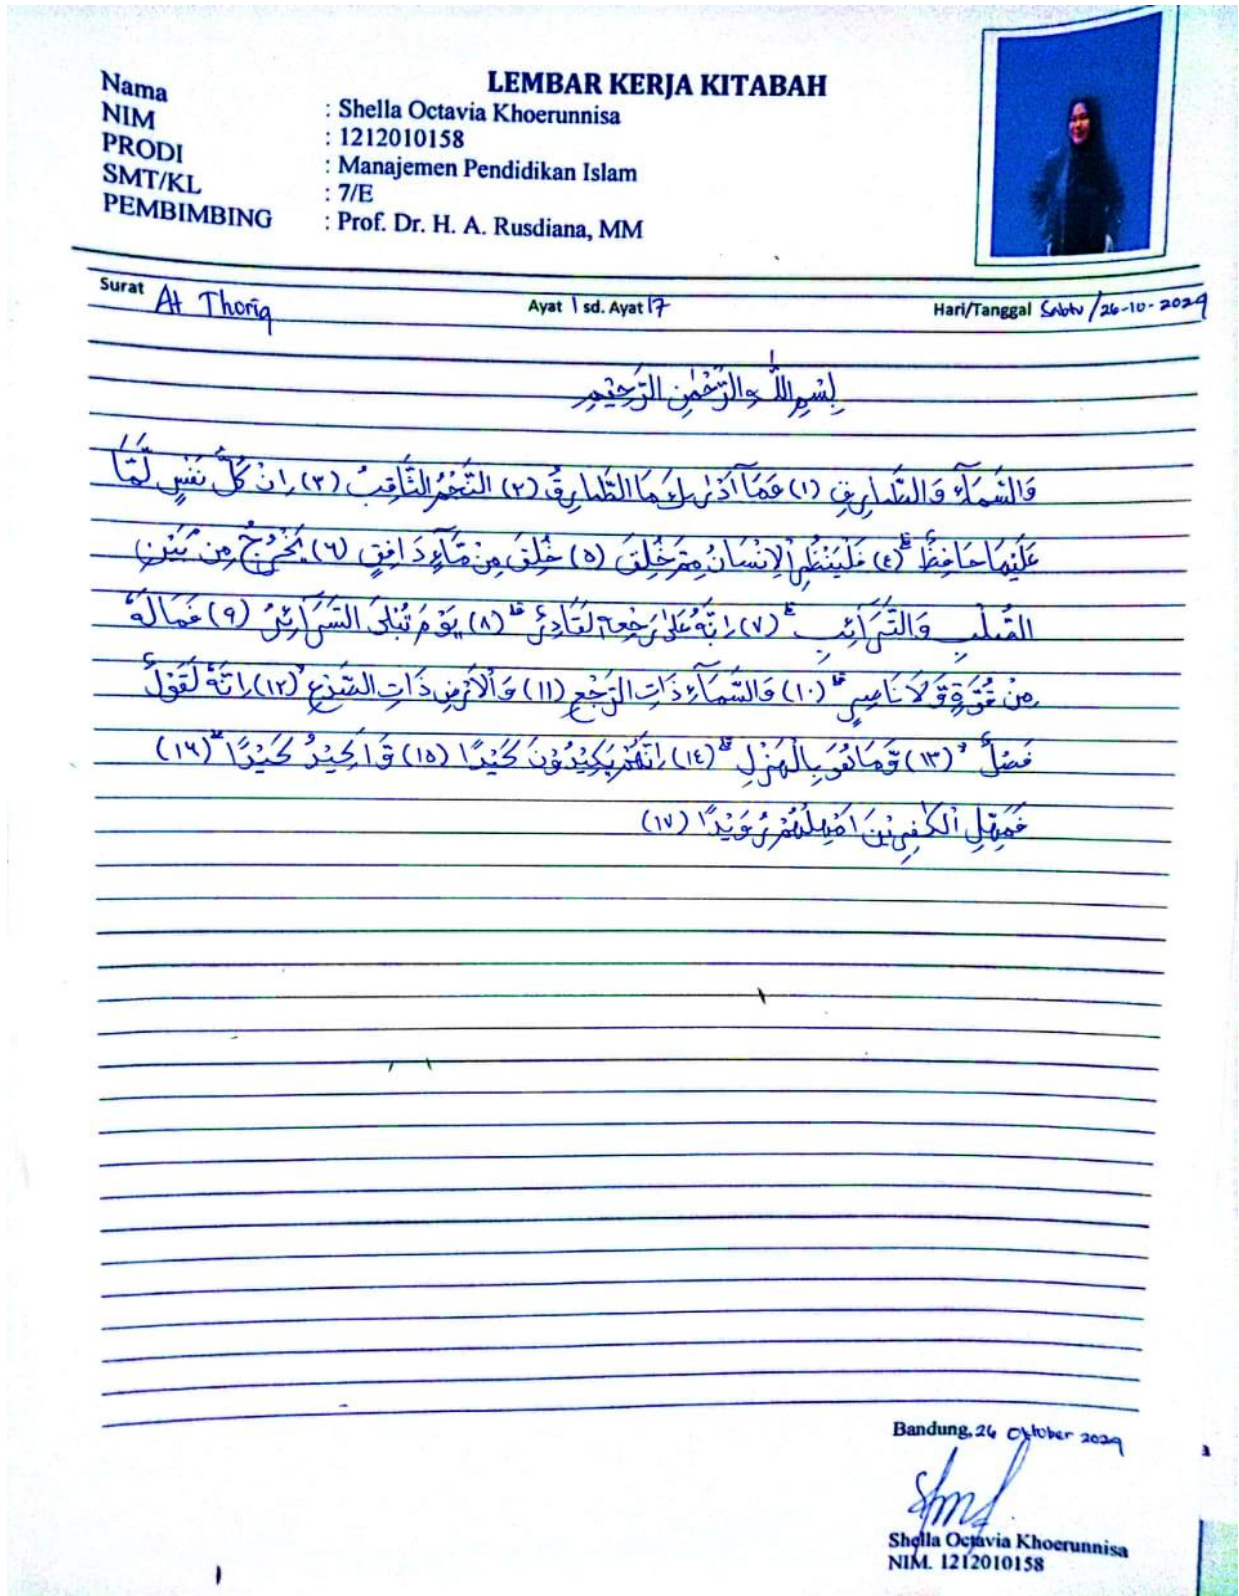 LEMBAR KERJA KITABAH
Nama : Shella Octavia Khoerunnisa
NIM : 1212010158
PRODI : Manajemen Pendidikan Islam
SMT/KL : 7/E
PEMBIMBING : Prof. Dr. H. A. Rusdiana, MM
Surat At Thoriq Ayat 1 sd. Ayat 17 Hari/Tanggal Sabtu/26-10-2024
بِسْمِ اللّٰهِ الرَّحْمٰنِ الرَّحِيْمِ
وَالسَّمَاۤءِ وَالطَّارِقِ (١) وَمَآ اَدْرٰىكَ مَا الطَّارِقُ (٢) النَّجْمُ الثَّاقِبُ (٣) اِنْ كُلُّ نَفْسٍ لَّمَّا
عَلَيْهَا حَافِظٌ ۗ (٤) فَلْيَنْظُرِ الْاِنْسَانُ مِمَّ خُلِقَ (٥) خُلِقَ مِنْ مَّاۤءٍ دَافِقٍ (٦) يَخْرُجُ مِنْ بَيْنِ
الصُّلْبِ وَالتَّرَاۤئِبِ ۗ (٧) اِنَّهُ عَلٰى رَجْعِهٖ لَقَادِرٌ ۗ (٨) يَوْمَ تُبْلَى السَّرَاۤئِرُ (٩) فَمَا لَهٗ
مِنْ قُوَّةٍ وَّلَا نَاصِرٍ ۗ (١٠) وَالسَّمَاۤءِ ذَاتِ الرَّجْعِ (١١) وَالْاَرْضِ ذَاتِ الصَّدْعِ ۙ (١٢) اِنَّهٗ لَقَوْلٌ
فَصْلٌ ۙ (١٣) وَّمَا هُوَ بِالْهَزْلِ ۗ (١٤) اِنَّهُمْ يَكِيْدُوْنَ كَيْدًا (١٥) وَّاَكِيْدُ كَيْدًا ۖ (١٦)
فَمَهِّلِ الْكٰفِرِيْنَ اَمْهِلْهُمْ رُوَيْدًا (١٧)
Bandung, 26 Oktober 2024
Shella Octavia Khoerunnisa
NIM. 1212010158